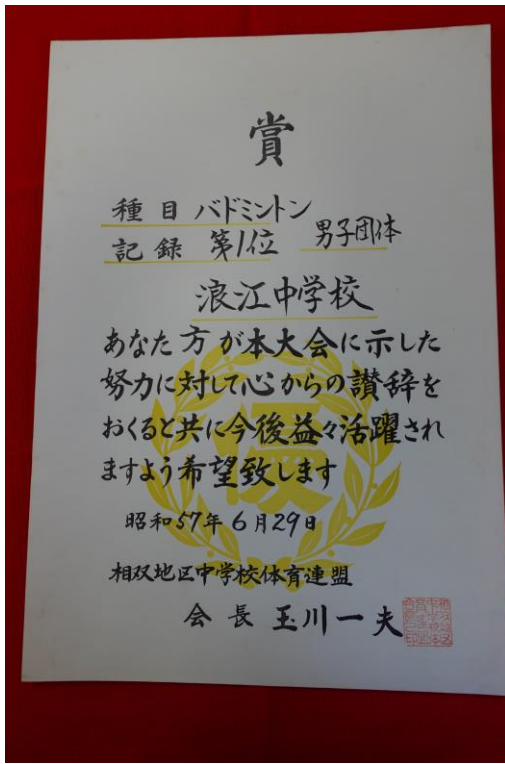 賞
種目 バドミントン
記録 第1位 男子団体
浪江中学校
あなた方が本大会に示した
努力に対して心からの讃辞を
おくると共に今後益々活躍され
ますよう希望致します
優
昭和57年6月29日
相双地区中学校体育連盟
会長 玉川一夫